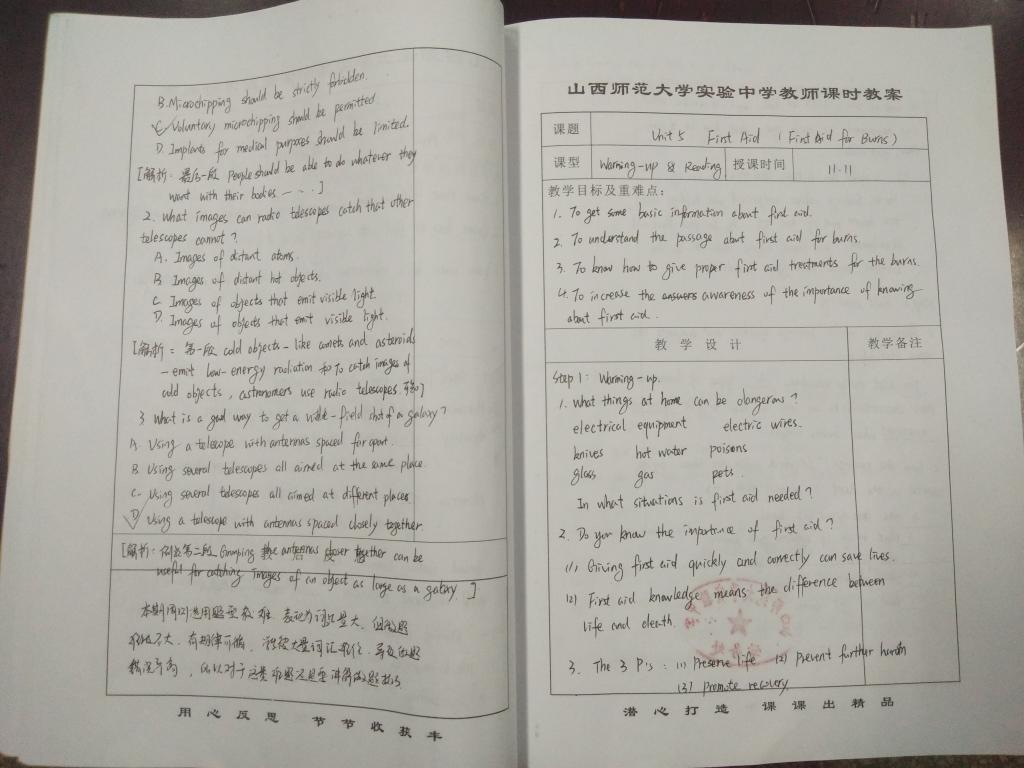 B. Microchipping should be strictly forbidden.
C. Voluntary microchipping should be permitted.
D. Implants for medical purposes should be limited.
[解析: 最后一段 People should be able to do whatever they
want with their bodies ----.]
2. What images can radio telescopes catch that other
telescopes cannot?
A. Images of distant atoms.
B. Images of distant hot objects.
C. Images of objects that emit visible light.
D. Images of objects that emit visible light.
[解析: 第一段 cold objects - like comets and asteroids
- emit low-energy radiation 和 To catch images of
cold objects, astronomers use radio telescopes.
3. What is a good way to get a wide-field shot of a galaxy?
A. Using a telescope with antennas spaced far apart.
B. Using several telescopes all aimed at the same place.
C. Using several telescopes all aimed at different places
D. Using a telescope with antennas spaced closely together.
[解析: 第二段 Grouping the antennas closer together can be
useful for catching images of an object as large as a galaxy.]
本期周口选用题型较难
用心反思 节节收获丰
山西师范大学实验中学教师课时教案
课题 Unit 5 First Aid (First Aid for Burns)
课型 Warming-up & Reading 授课时间 11.11
教学目标及重难点:
1. To get some basic information about first aid.
2. To understand the passage about first aid for burns.
3. To know how to give proper first aid treatments for the burns.
4. To increase the awareness of the importance of knowing
about first aid.
教学设计 教学备注
Step 1: Warming-up.
1. What things at home can be dangerous?
electrical equipment electric wires.
knives hot water poisons
glass gas pets.
In what situations is first aid needed?
2. Do you know the importance of first aid?
(1) Giving first aid quickly and correctly can save lives.
(2) First aid knowledge means the difference between
life and death.
3. The 3 P's: (1) Preserve life (2) Prevent further harm
(3) Promote recovery.
潜心打造 课课出精品